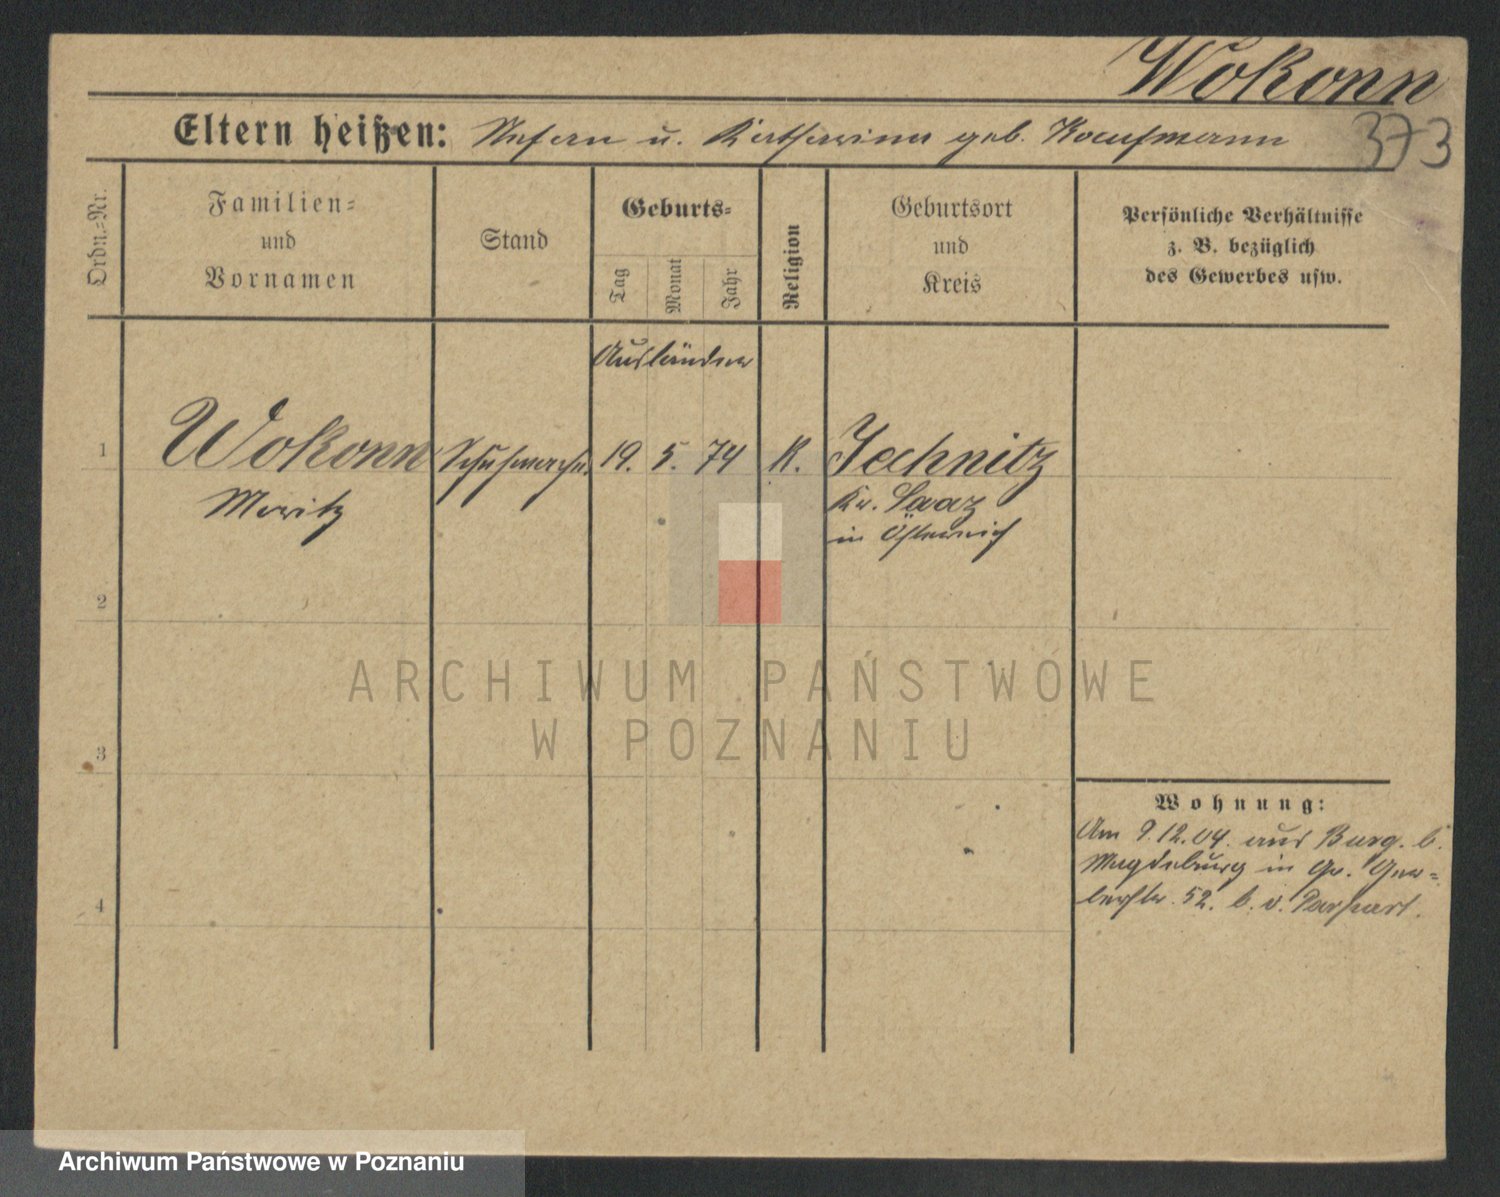 Wokonn
373
Eltern heißen: u. Katharina geb. Kaufmann
Ordn.-Nr.
Familien-
und
Vornamen
Stand
Geburts-
Tag
Monat
Jahr
Religion
Geburtsort
und
Kreis
Persönliche Verhältnisse
z. B. bezüglich
des Gewerbes usw.
Ausländer
1
Wokonn Schuhmacher 19. 5. 74 K. Jechnitz
Moritz
Kr. Saaz
in Österreich
2
3
4
Wohnung:
Am 9.12.04. aus Burg. b.
Magdeburg in Gr. Ger-
berstr. 52. b. v.
ARCHIWUM PAŃSTWOWE
W POZNANIU
Archiwum Państwowe w Poznaniu